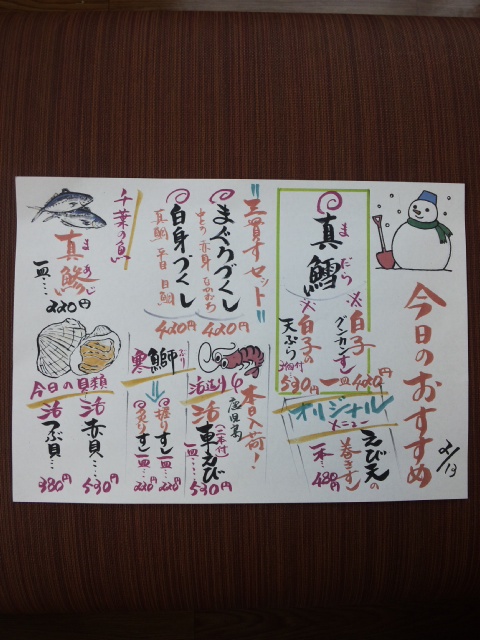 今日のおすすめ
2/13
真鱈
まだら
※白子
グンカンすし
一皿 420円
※白子の
天ぷら
530円
オリジナル
メニュー
えび天の
巻きすし
一本… 480円
"三貫すしセット"
まぐろづくし
420円
白身づくし
真鯛 平目 目鯛
420円
本日入荷!
鹿児島
活造り
活車えび
(二本付)
一皿… 530円
寒鰤
ぶり
握りすし一皿… 220円
炙りすし一皿… 220円
千葉の魚
真鯵
まあじ
一皿… 220円
今日の貝類
活赤貝… 530円
活つぶ貝… 380円